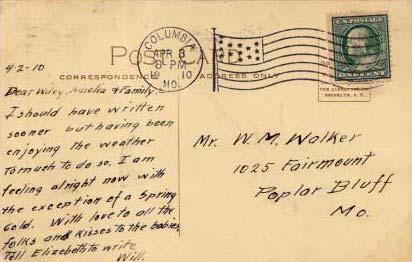 POST CARD
CORRESPONDENCE
ADDRESS ONLY
COLUMBIA
APR 3
8-PM
19 10
MO.
U.S. POSTAGE
ONE CENT
BROOKLYN, N.Y.
4-2-10
Dear Wiley, Amelia & Family:
I should have written
sooner but having been
enjoying the weather
to much to do so. I am
feeling alright now with
the exception of a Spring
Cold. With love to all the
folks and kisses to the babies
Tell Elizebeth to write
Will.
Mr. W. M. Walker
1025 Fairmount
Poplar Bluff
Mo.